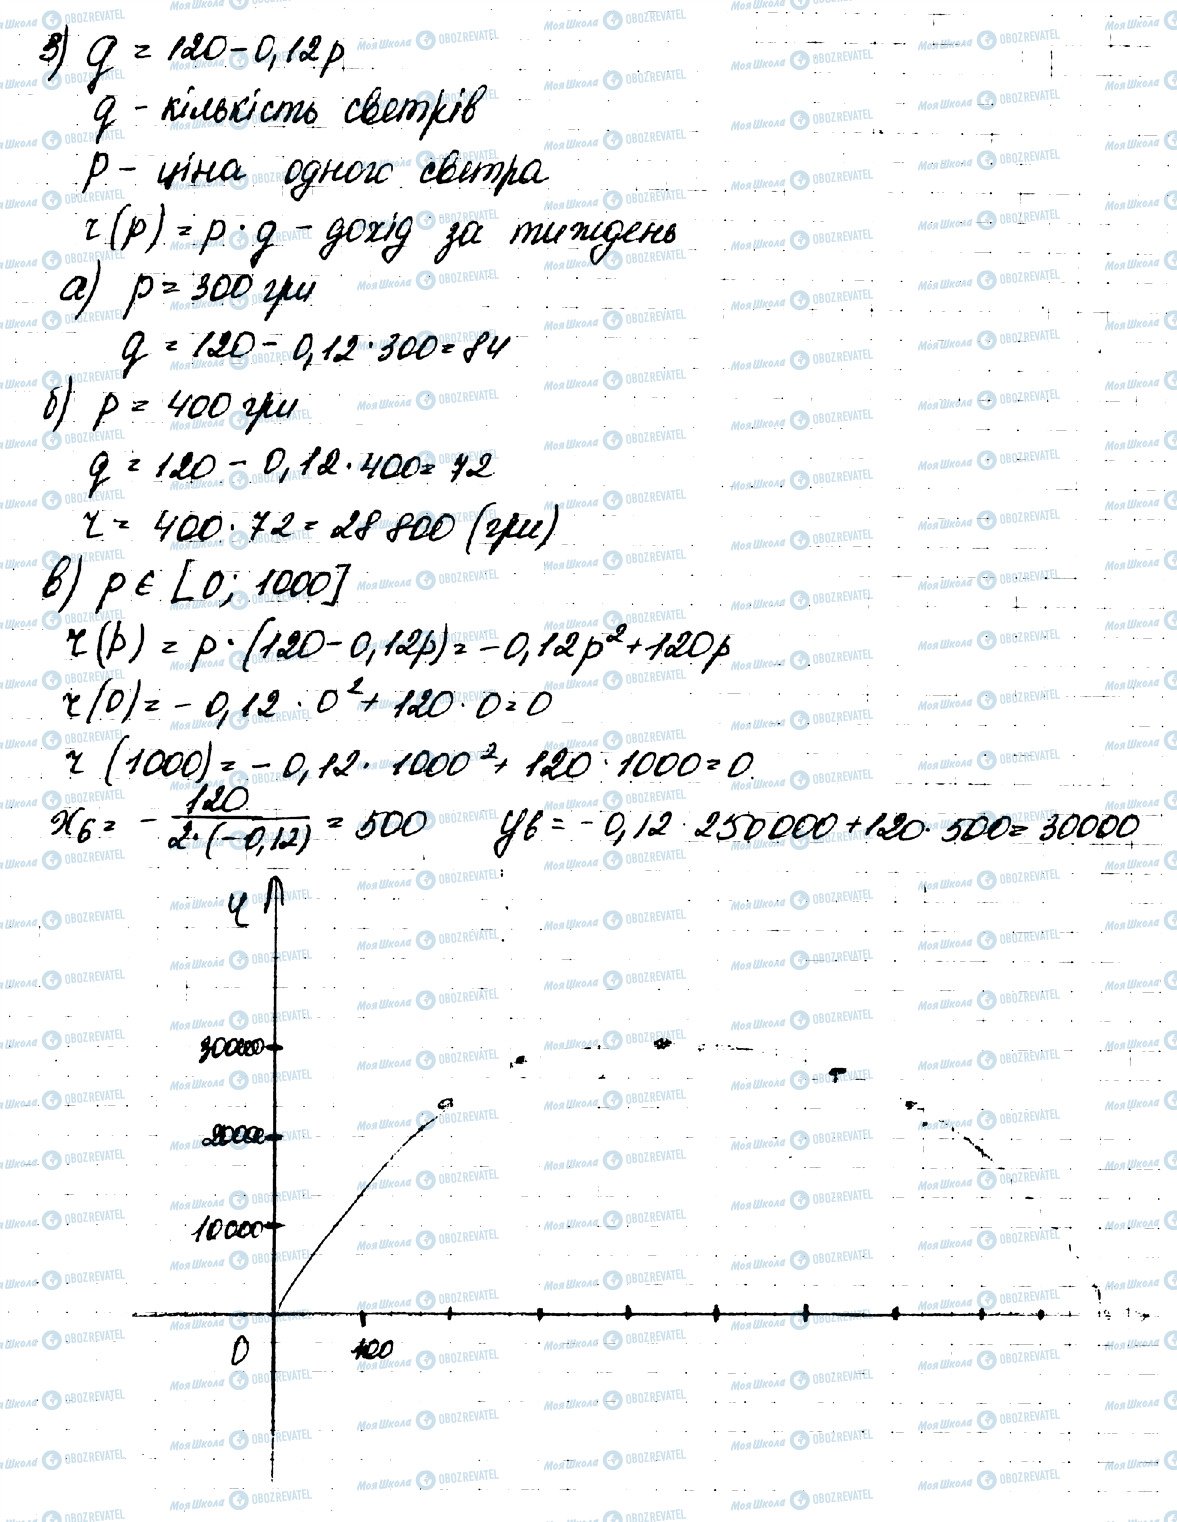 3) g = 120 - 0,12p
g - кількість светрів
p - ціна одного светра
r(p) = p · g - дохід за тиждень
а) p = 300 грн
g = 120 - 0,12 · 300 = 84
б) p = 400 грн
g = 120 - 0,12 · 400 = 72
r = 400 · 72 = 28 800 (грн)
в) p ∈ [0; 1000]
r(p) = p · (120 - 0,12p) = -0,12p² + 120p
r(0) = -0,12 · 0² + 120 · 0 = 0
r(1000) = -0,12 · 1000² + 120 · 1000 = 0
xв = - 120 / 2·(-0,12) = 500 yв = -0,12 · 250000 + 120 · 500 = 30000
30000
20000
10000
0 100
МояШкола OBOZREVATEL